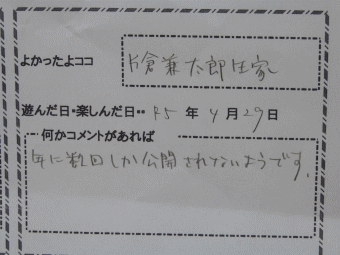 よかったよココ 片倉兼太郎住家
遊んだ日・楽しんだ日・・ R5 年 4 月 29 日
何かコメントがあれば
年に数回しか公開されないようです。